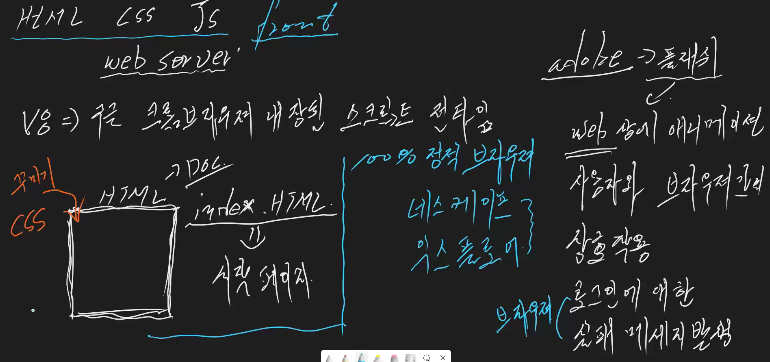 HTML CSS JS front
web server
V8 => 구글 크롬브라우저 내장된 스크립트 런타임
꾸미기
CSS
HTML
→ DOC
index.HTML
시작 페이지
100% 정적 브라우저
네스케이프
익스플로어
adobe → 플래시
web 상에 애니메이션
사용자와 브라우저간의
상호작용
브라우저
로그인에 대한
실패 메세지 발생